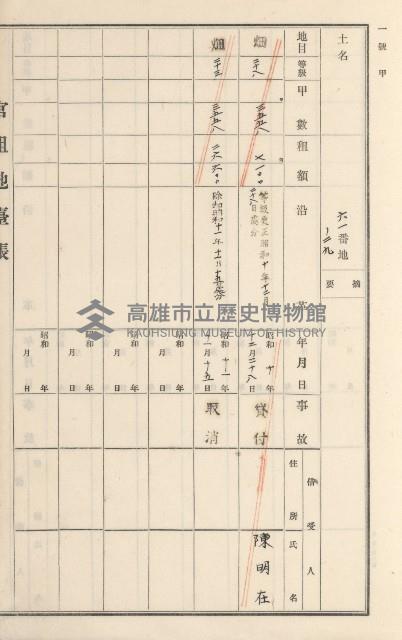 一號甲
土名
六一番地
ノ三九
摘要
地目
等級
甲數
租額
沿革
年月日
事故
借受人
住所
氏名
畑
三五五八
等級更正昭和十年十二月
二十八日處分
昭和十年
十二月二十八日
貸付
陳明在
畑
三五五八
昭和十一年
十一月十五日
取消
昭和年
月日
昭和年
月日
昭和年
月日
昭和年
月日
官租地臺帳
高雄市立歷史博物館
KAOHSIUNG MUSEUM OF HISTORY